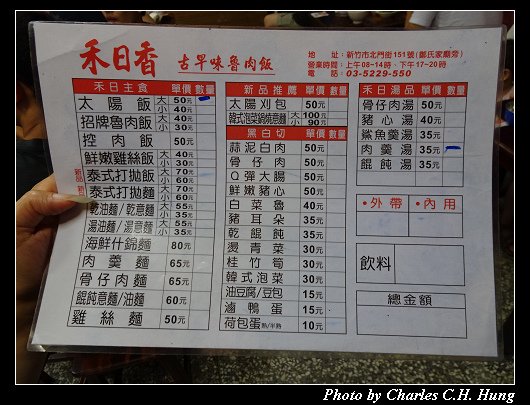 禾日香 古早味魯肉飯
地 址：新竹市北門街151號(鄭氏家廟旁)
營業時間：上午08~14時、下午17~20時
電 話：03-5229-550
禾日主食 單價 數量
太陽飯 大 50元
小 40元
招牌魯肉飯 大 40元
小 30元
控肉飯 50元
鮮嫩雞絲飯 大 40元
小 30元
新品 泰式打拋飯 大 70元
小 60元
泰式打拋麵 大 70元
小 60元
乾油麵/乾意麵 大 55元
小 35元
湯油麵/湯意麵 大 55元
小 35元
海鮮什錦麵 80元
肉羹麵 65元
骨仔肉麵 65元
餛飩意麵/油麵 60元
雞絲麵 50元
新品推薦 單價 數量
太陽刈包 50元
韓式泡菜鍋燒意麵 大 100元
小 90元
黑白切 單價 數量
蒜泥白肉 50元
骨仔肉 50元
Q彈大腸 50元
鮮嫩豬心 50元
白菜魯 40元
豬耳朵 35元
乾餛飩 35元
燙青菜 30元
桂竹筍 30元
韓式泡菜 30元
油豆腐/豆包 15元
滷鴨蛋 15元
荷包蛋熟/半熟 10元
禾日湯品 單價 數量
骨仔肉湯 50元
豬心湯 40元
鯊魚羹湯 35元
肉羹湯 35元
餛飩湯 35元
•外帶 •內用
飲料
總金額
Photo by Charles C.H. Hung